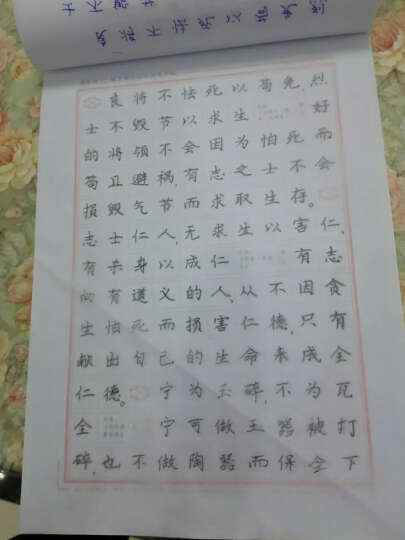 良将不怯死以苟免,烈
士不毁节以求生 好
的将领不会因为怕死而
苟且避祸,有志之士不会
损毁气节而求取生存。
志士仁人,无求生以害仁,
有杀身以成仁 有志
向有道义的人,从不因贪
生怕死而损害仁德,只有
献出自己的生命来成全
仁德。 宁为玉碎,不为瓦
全 宁可做玉器被打
碎,也不做陶器而保全下